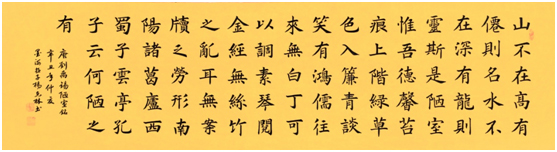 山不在高有
僊則名水不
在深有龍則
靈斯是陋室
惟吾德馨苔
痕上階綠草
色入簾青談
笑有鴻儒往
來無白丁可
以調素琴閱
金經無絲竹
之亂耳無案
牘之勞形南
陽諸葛廬西
蜀子雲亭孔
子云何陋之
有
唐劉禹錫陋室銘
辛丑年仲